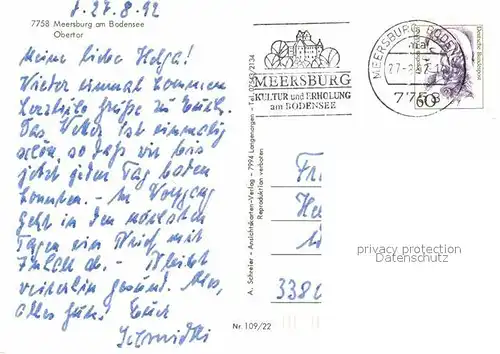 d. 27.8.92
7758 Meersburg am Bodensee
Obertor
Meine liebe Helga!
Wieder einmal kommen
herzliche Grüße zu Euch.
Das Wetter ist einmalig
schön so daß wir bis
jetzt jeden Tag baden
konnten. - Im Vorgang
geht in den nächsten
Tagen ein mit
ab. - Bleibt
weiterhin gesund. Also,
alles Gute! Euch
Schmidtli
MEERSBURG
KULTUR und ERHOLUNG
am BODENSEE
MEERSBURG, BODENSEE
27.-8.92
7758
60
Deutsche Bundespost
A. Schreier - Ansichtskarten-Verlag - 7994 Langenargen - Tel. 07543/2134
Reproduktion verboten
Fr
He
3380
privacy protection
Datenschutz
Nr. 109/22